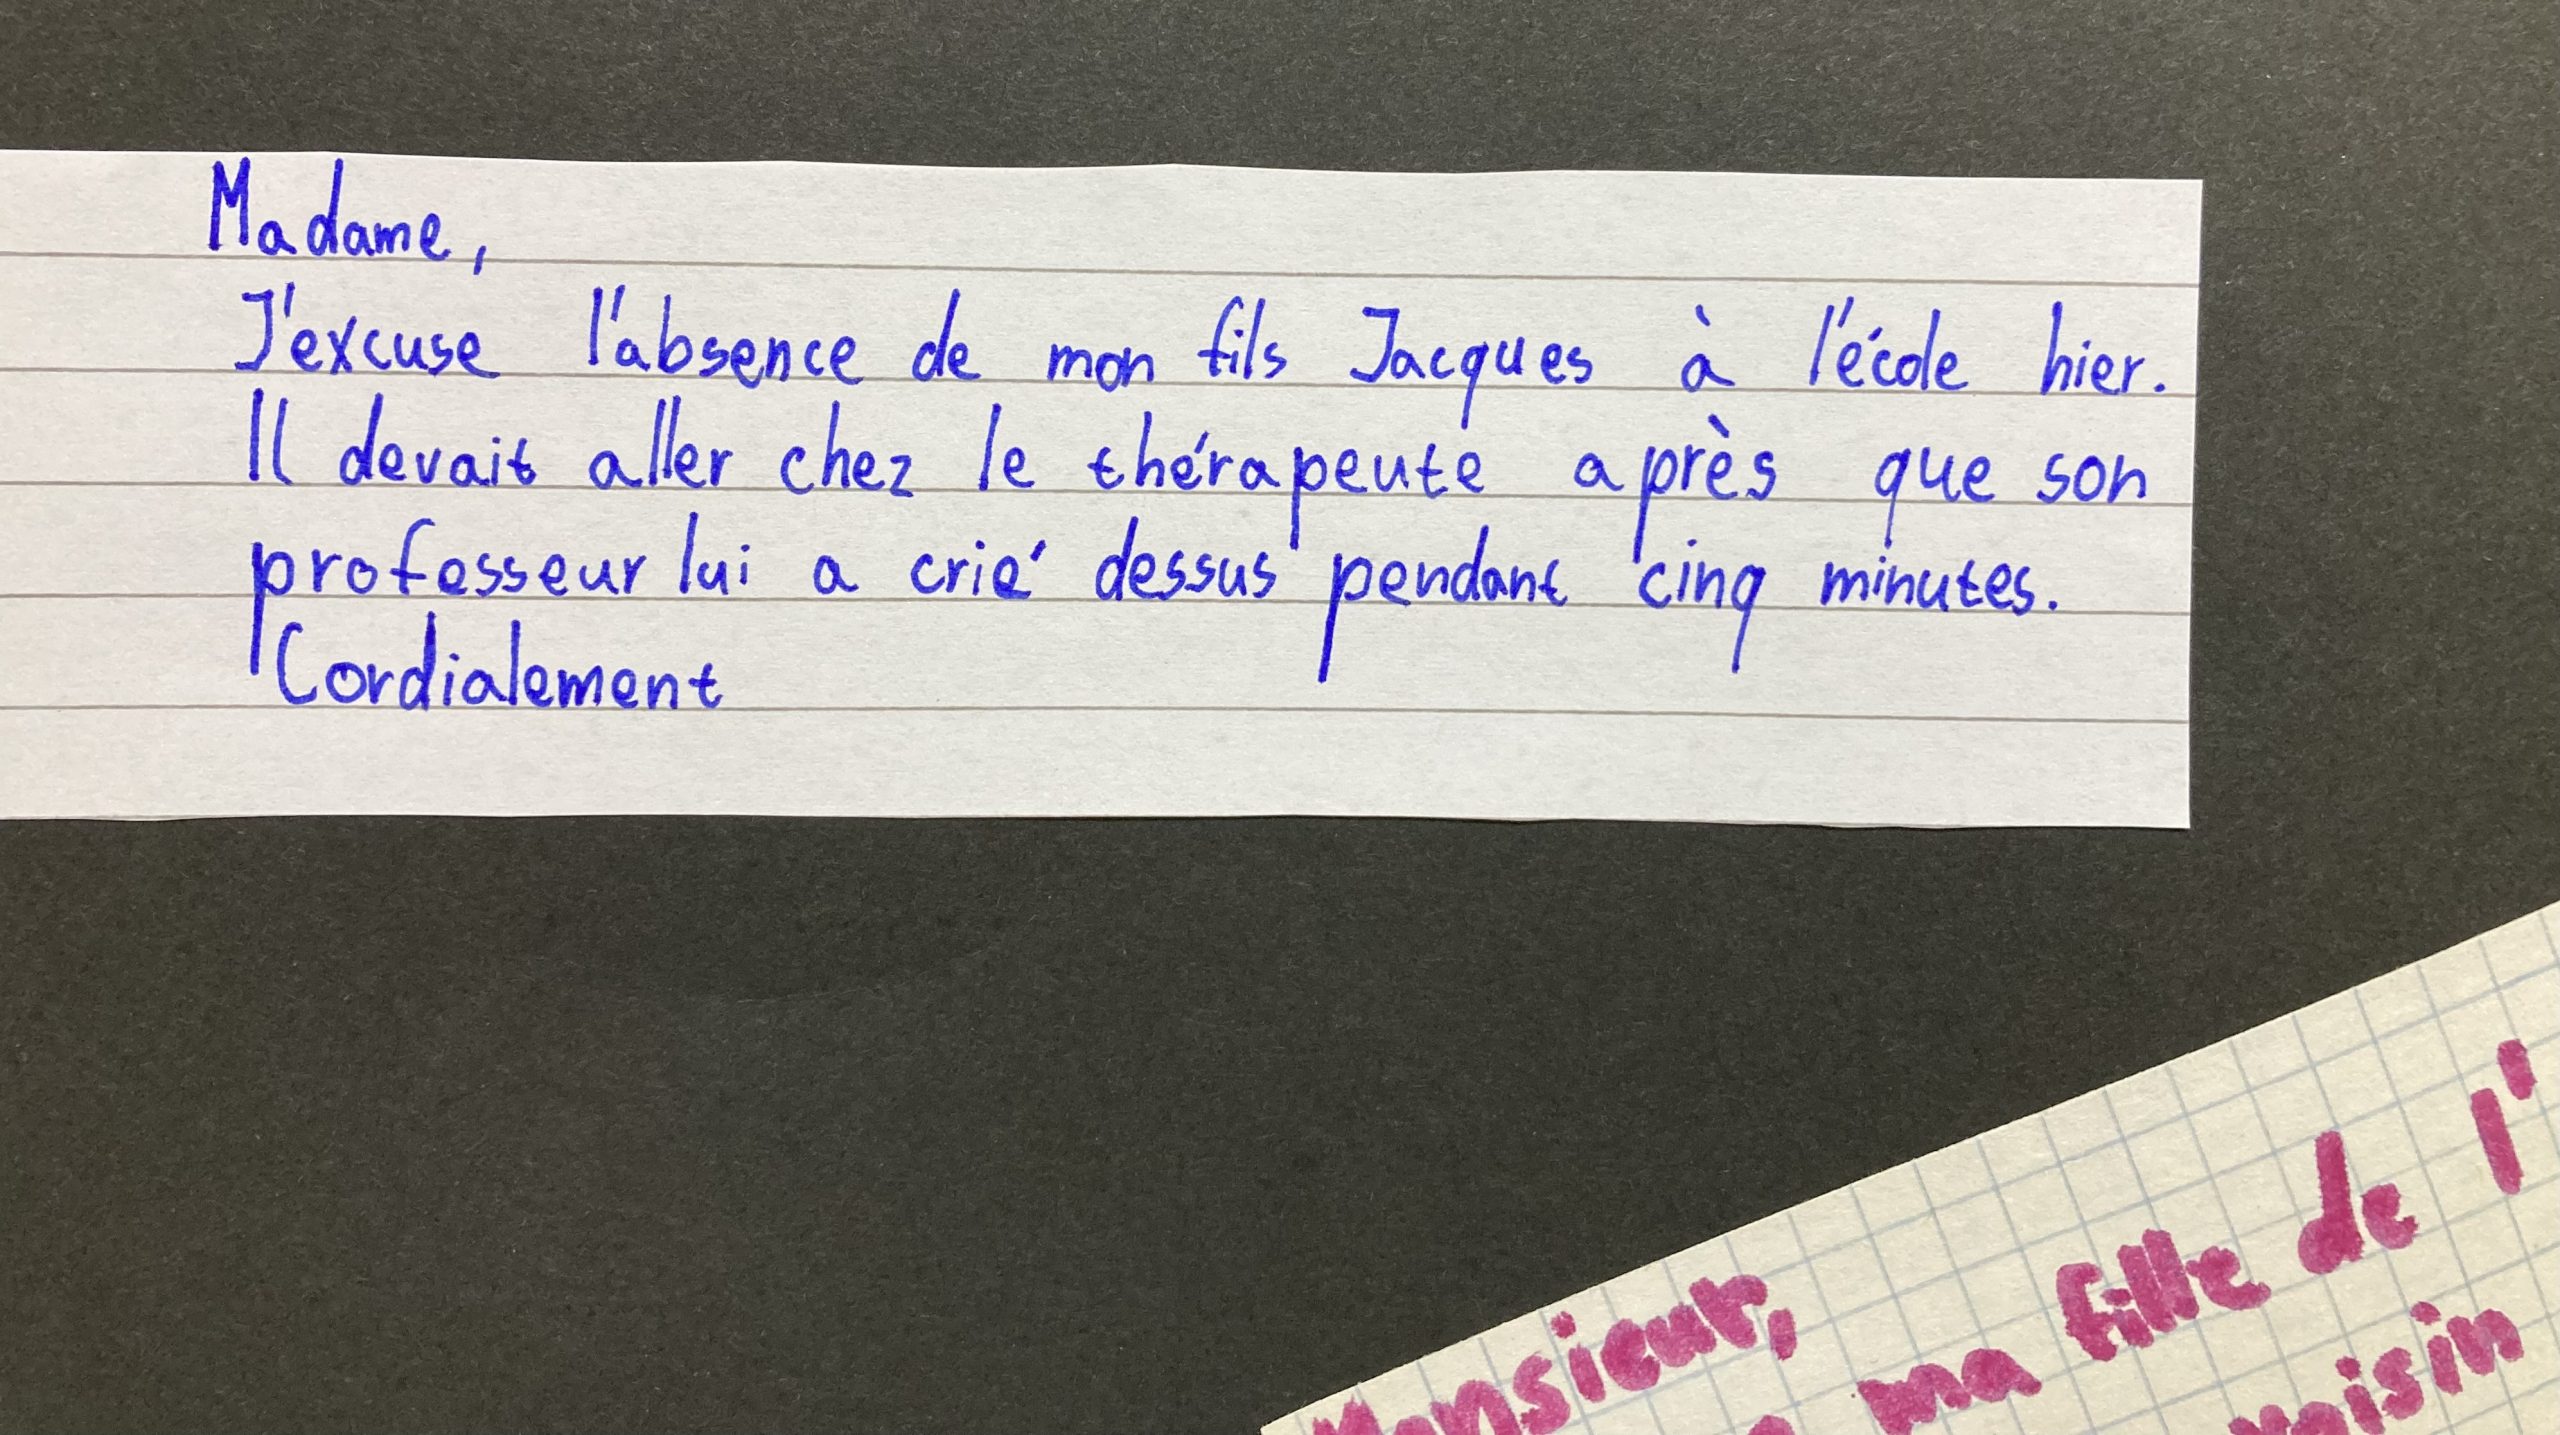 Madame,
J'excuse l'absence de mon fils Jacques à l'école hier.
Il devait aller chez le thérapeute après que son
professeur lui a crié dessus pendant cinq minutes.
Cordialement
Monsieur,
ma fille de l'
voisin